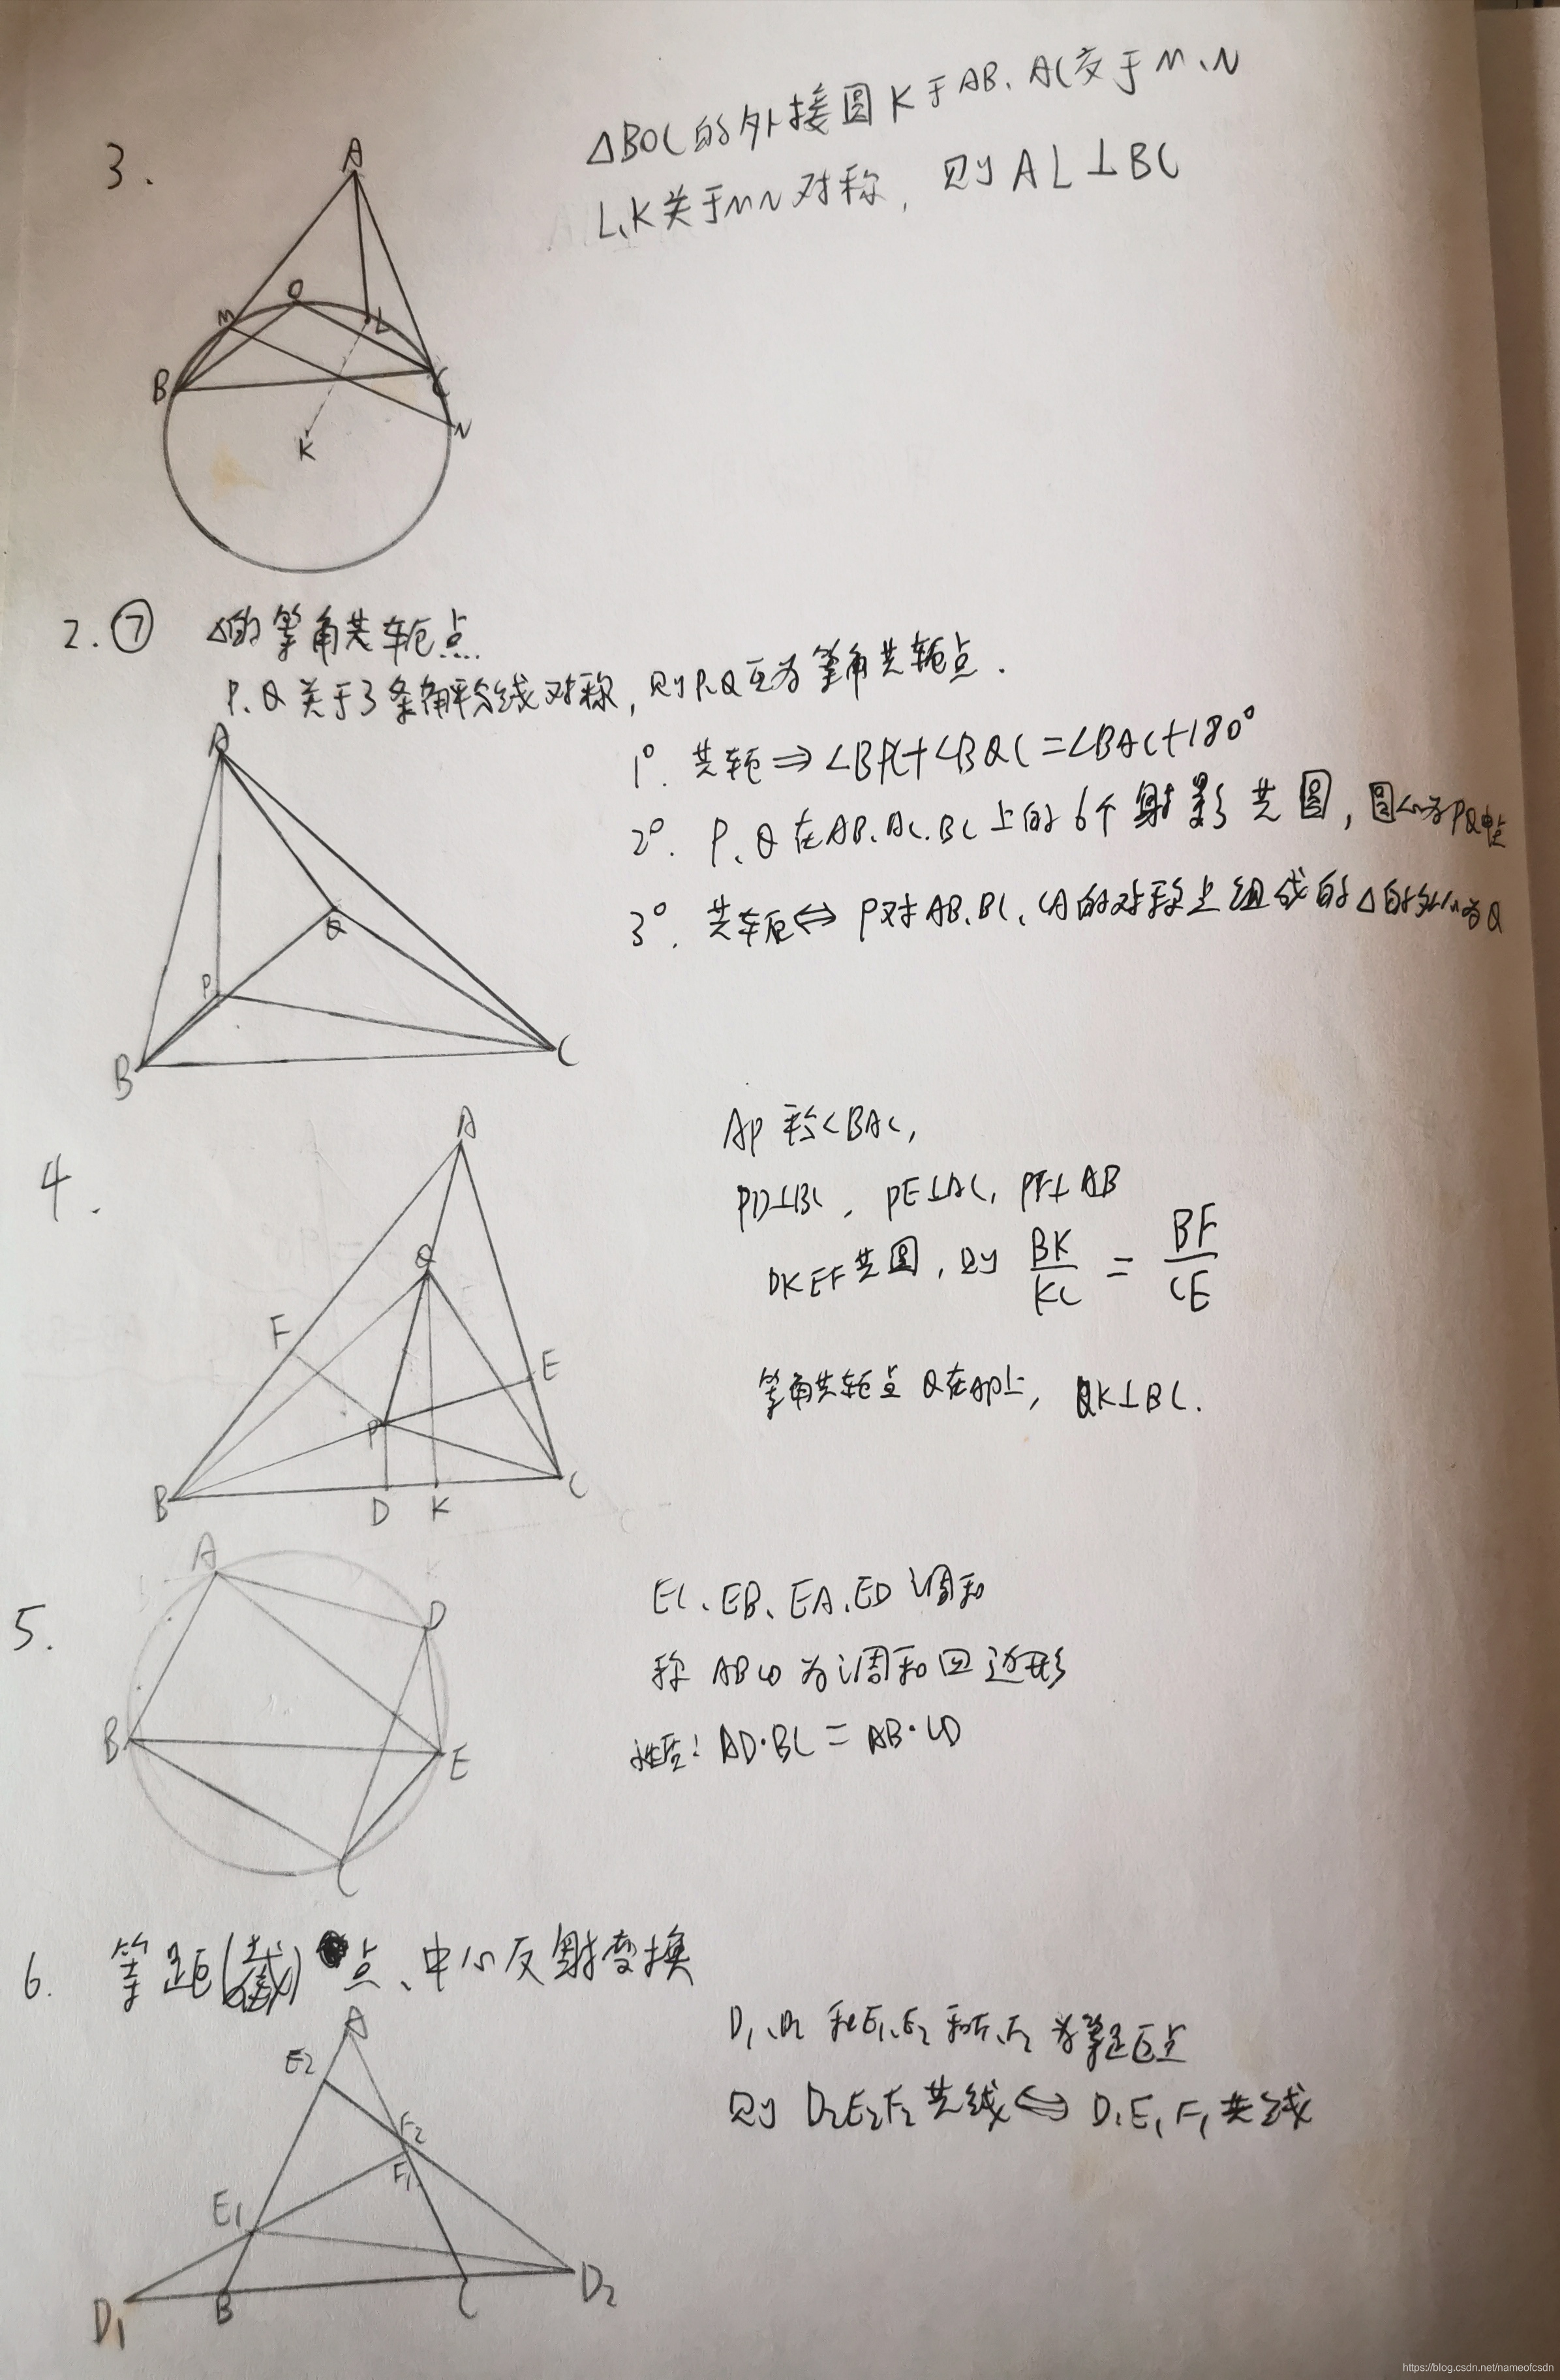 3.
△BOC的外接圆K于AB、AC交于M、N
L、K关于MN对称, 则AL⊥BC
A
O
M
L
B
C
N
K
2.⑦ △的等角共轭点
P、Q关于3条角平分线对称, 则P、Q互为等角共轭点.
1° . 共轭⇒∠BPC+∠BQC=∠BAC+180°
2° . P、Q在AB、AC、BC上的6个射影共圆, 圆心为PQ中点
3° . 共轭⇔P对AB、BC、CA的对称点组成的△的外心为Q
A
Q
P
B
C
4.
AP平分∠BAC,
PD⊥BC, PE⊥AC, PF⊥AB
DKEF共圆, 则 BK/KC = BF/CE
等角共轭点Q在AP上, QK⊥BC.
A
Q
F
E
P
B
D
K
C
5.
EC、EB、EA、ED调和
称ABCD为调和四边形
性质: AD·BC=AB·CD
A
D
B
E
C
6. 等距(截)点、中心反射变换
D₁、D₂和E₁、E₂和F₁、F₂为等距点
则D₂E₂F₂共线⇔D₁E₁F₁共线
A
E₂
F₂
F₁
E₁
D₁
B
C
D₂
https://blog.csdn.net/nameofcsdn